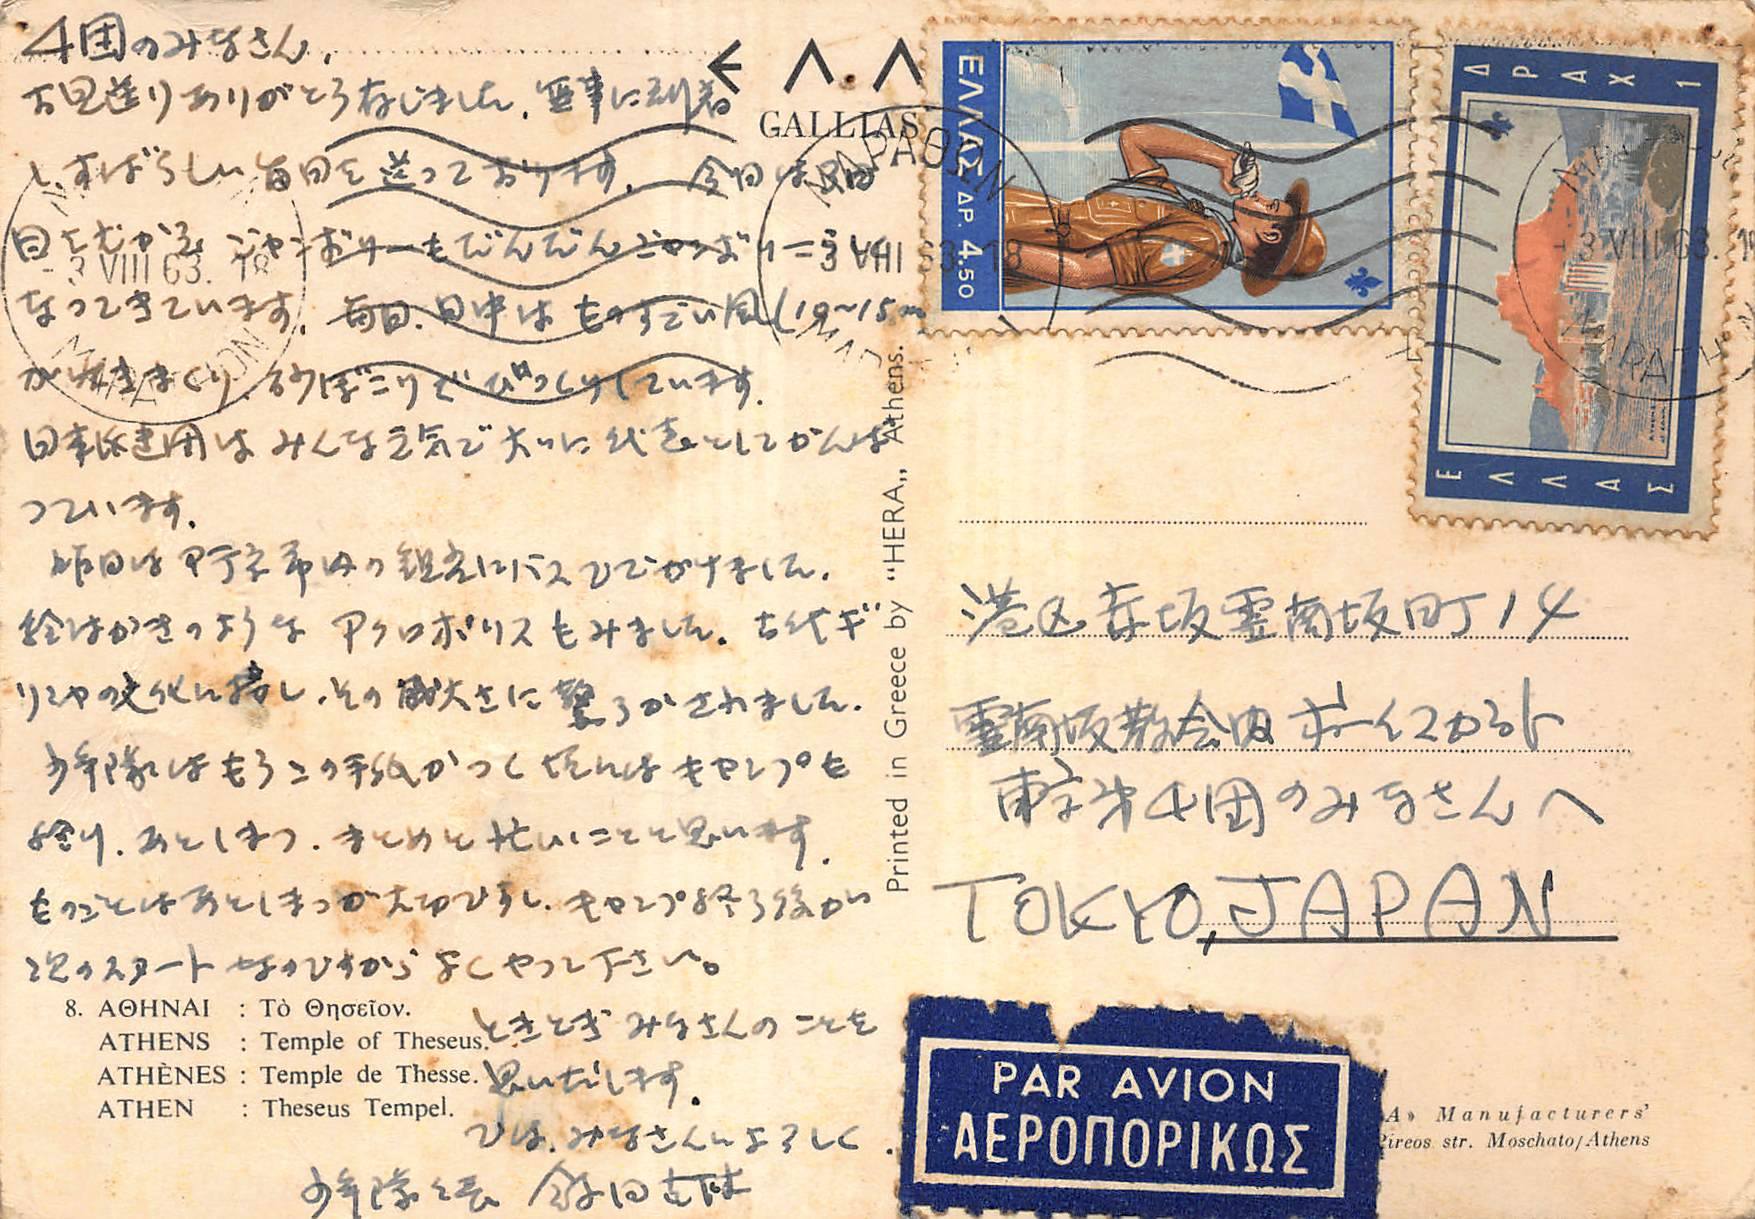 4団のみなさん.
お見送りありがとう存じました. 無事に到着
しすばらしい毎日を送っております. 今日は
日をむかえ ジャンボリーもだんだん
なってきています. 毎日. 日中は ものすごい風(10~15m
が吹きまくり. 砂ぼこりで びっくりしています.
日本派遣団は みんな元気で 大いに代表としてがんば
っています.
昨日は アテネ市内の観光にバスででかけました.
絵はがきのような アクロポリスもみました. 古代ギ
リシヤの文化に接し. その偉大さに 驚ろかされました.
少年隊はもうこの手紙がつく頃にはキャンプも
終り. あとしまつ. まとめと忙しいことと思います.
ものごとはあとしまつが大切ですし. キャンプ終了後が
次のスタートなのですから よくやって下さい。
ときどき みなさんのことを
思いだします.
では. みなさんによろしく.
少年隊々長
8. ΑΘΗΝΑΙ : Τὸ Θησεῖον.
ATHENS : Temple of Theseus.
ATHÈNES : Temple de Thesse.
ATHEN : Theseus Tempel.
Printed in Greece by “HERA„ Athens.
Ε Λ. Λ
GALLIAS
ΕΛΛΑΣ ΔΡ. 4.50
ΔΡΑΧ 1
ΕΛΛΑΣ
ΜΑΡΑΘΩΝ
-3 VIII 63. 18
MARATHON
港区赤坂霊南坂町14
霊南坂教会内 ボーイスカウト
東京第4団のみなさんへ
TOKYO, JAPAN
PAR AVION
ΑΕΡΟΠΟΡΙΚΩΣ
A» Manufacturers'
Pireos str. Moschato/Athens